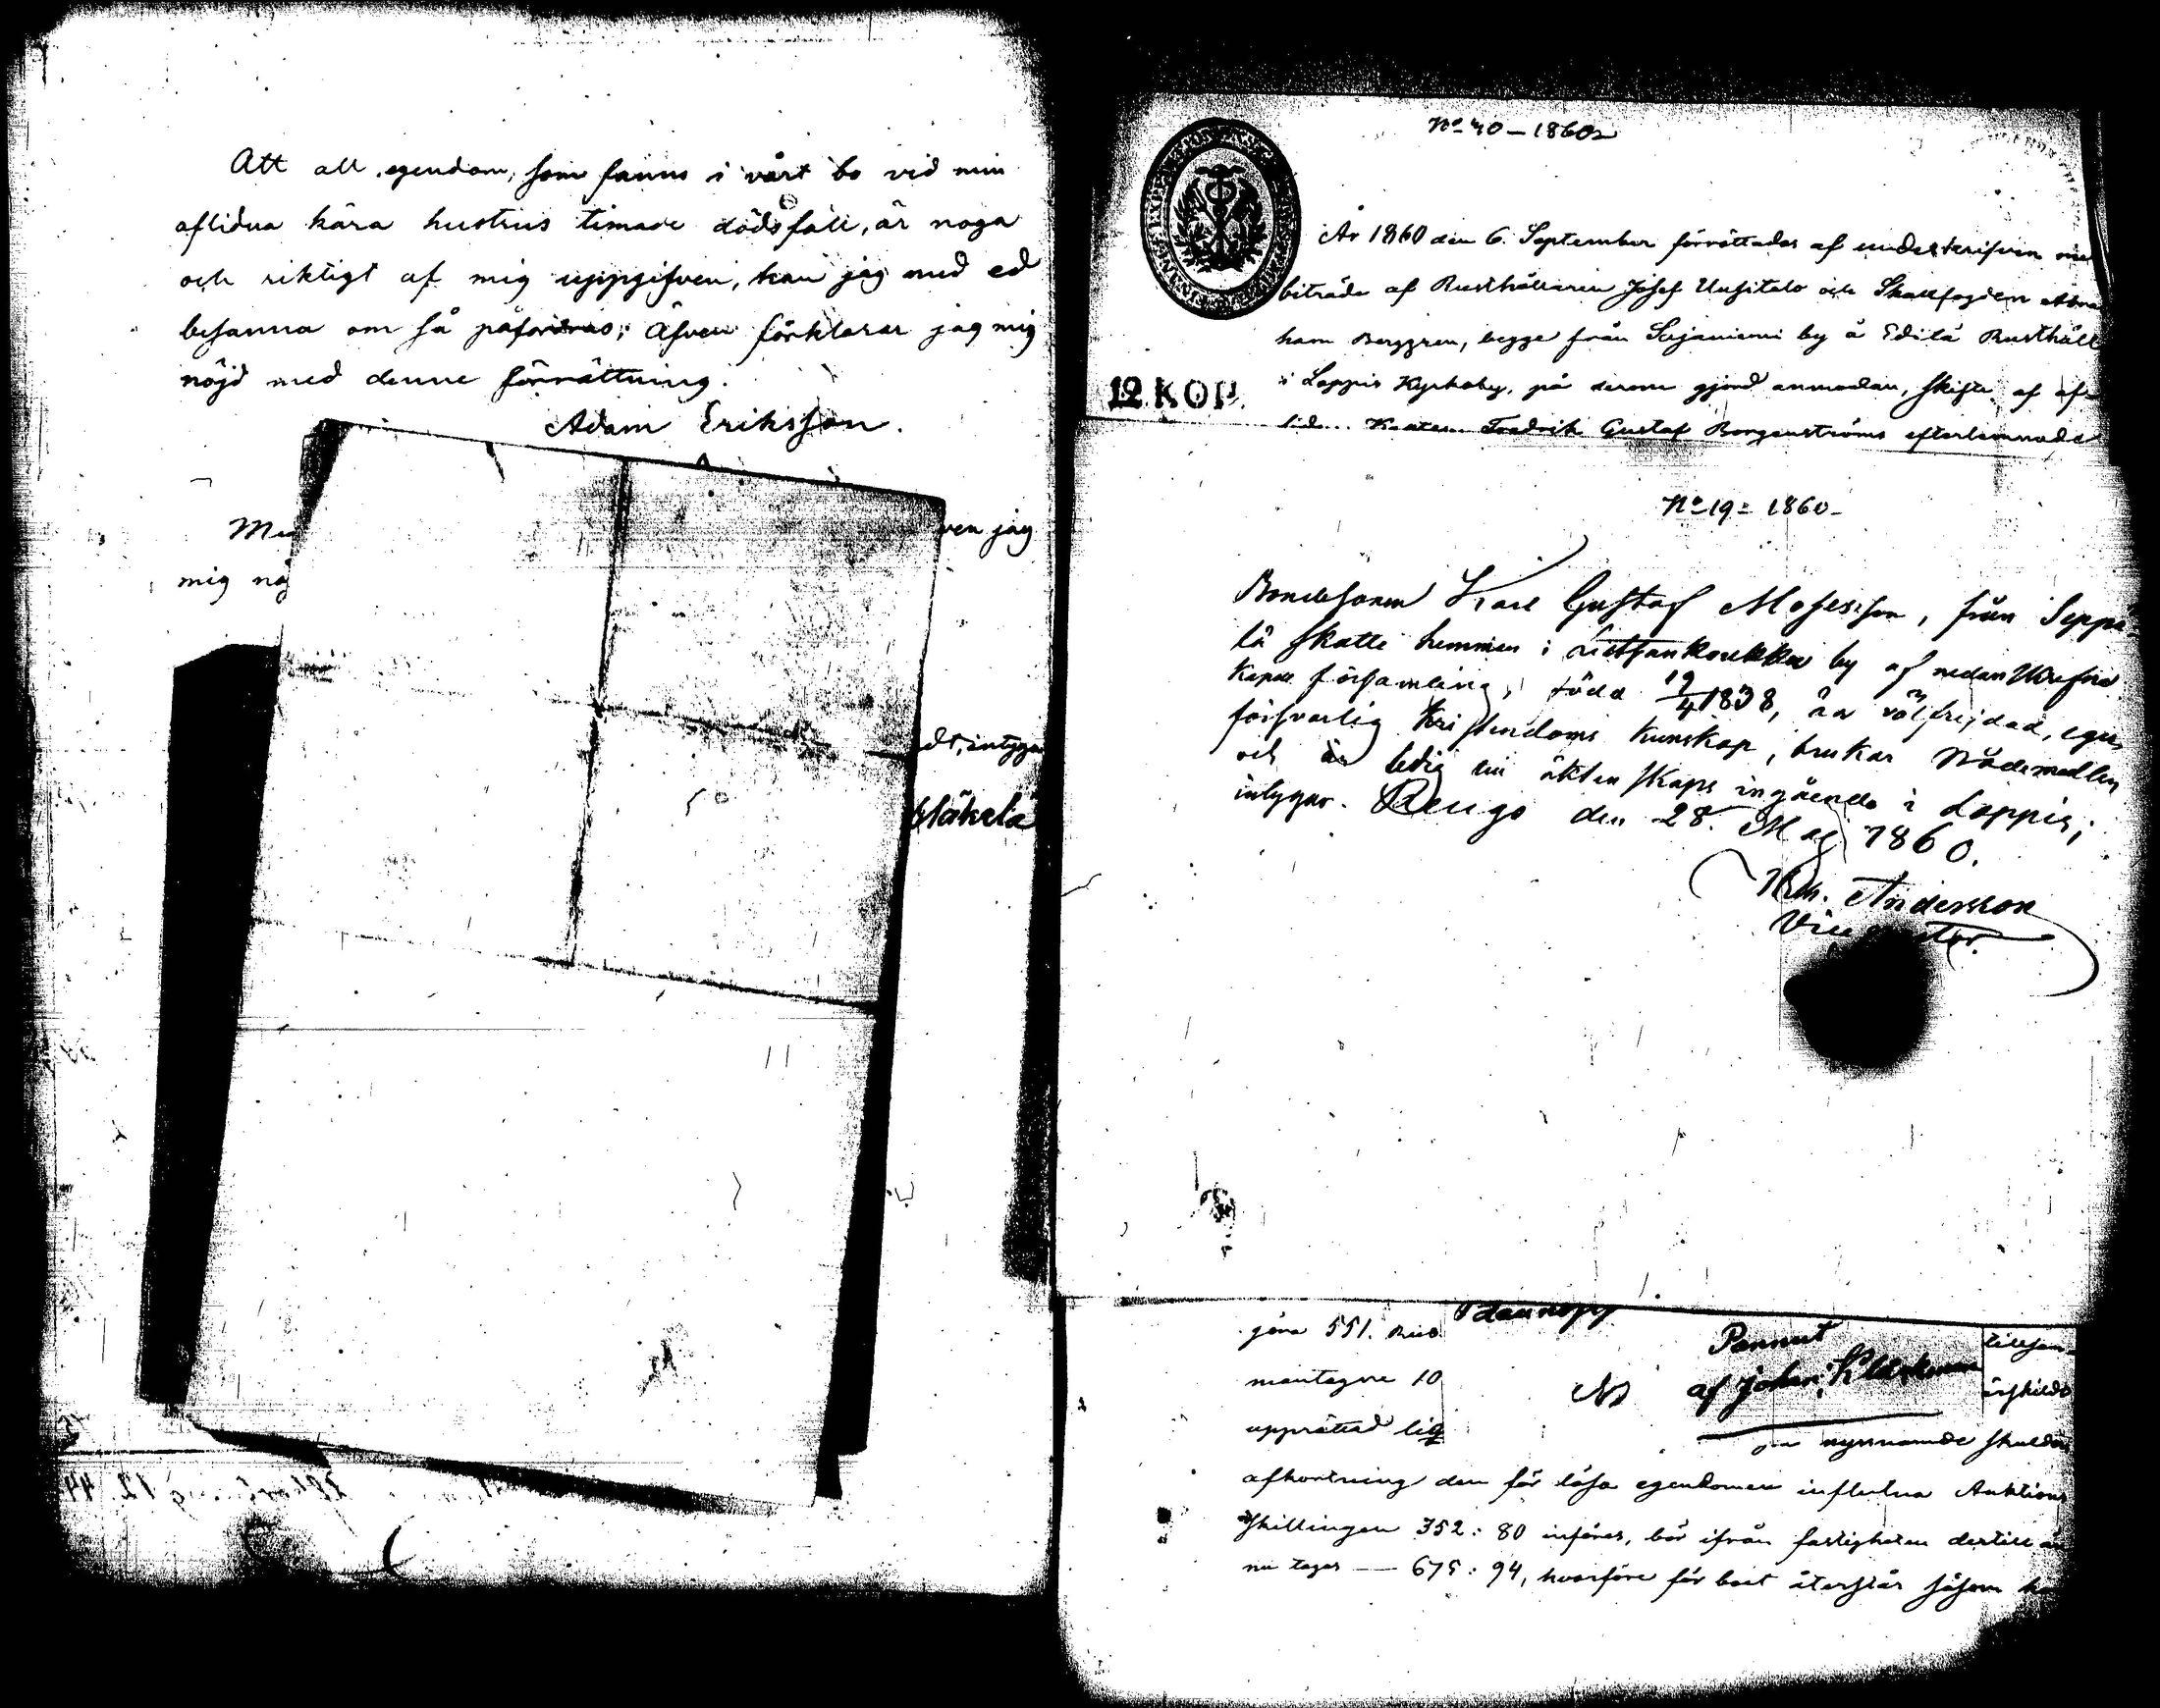 Att all egendom, som fanns i vårt bo vid min
aflidna kära hustrus timade dödsfall, är noga
och riktigt af mig uppgifven, kan jag med ed
besanna om så påfordras; Äfven förklarar jag mig
nöjd med denne förrättning.
Adam Eriksson.
ven jag
mig nö
dt, intyga
No 40 – 1860
12 KOP.
År 1860 den 6. September förrättades af undeskrifven me
biträde af Rusthållaren Josef Uusitalo och Skallfogden Abra
ham Berggren, begge från Sajaniemi by å Edilä Rusthåll
i Loppis Kyrkoby, på derom gjord anmodan, skifte af af-
Fredrik Gustaf Borgenströms efterlemnade
No 19 = 1860 –
Bondesonen Karl Gustaf Mosesson, från Seppä-
lä skatte hemman i by af nedan
Kapell församling, född 19/4 1838, är välfrejdad, eger
försvarlig Kristendoms kunskap, brukar Nådemedlen
och är ledig till äktenskaps ingående i Loppis;
intygar. Rengo den 28. Maj 1860.
Andersson
göra 551. Rub
Pennut
tillsam
mantagne 10
af Johan
ärskilde
upprättad lig
nyssnämnde skulder
afkortning den för lösa egendomen influtna Auktions
skillingen 352: 80 införes, bör ifrån fastigheten dertill än
nu tagas — 675: 94, hvarföre för boet återstår såsom